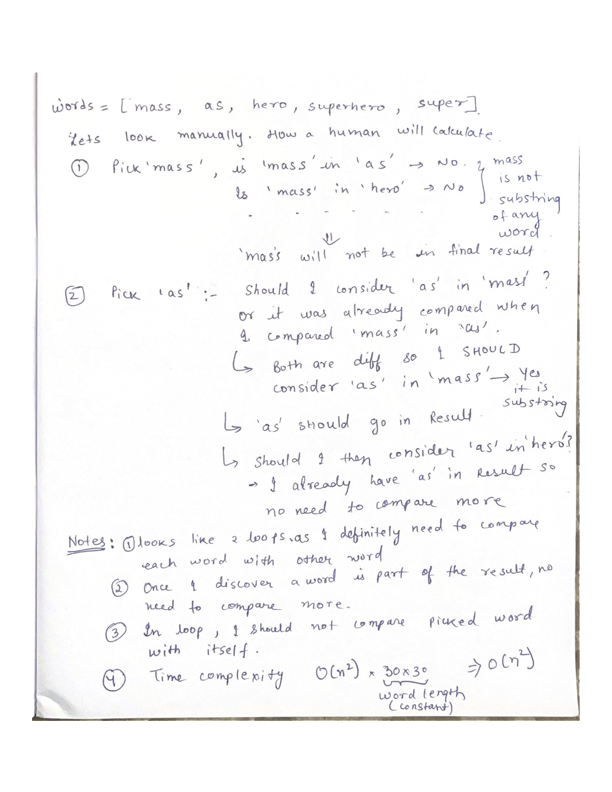 words = [ mass, as, hero, superhero, super].
Lets look manually. How a human will calculate.
① Pick 'mass', is 'mass' in 'as' → No.
Is 'mass' in 'hero' → No
- - - - - -
mass
is not
substring
of any
word.
⇓
'mass will not be in final result
② Pick 'as' :- Should I consider 'as' in 'mass' ?
or it was already compared when
I compared 'mass' in 'as'.
↳ Both are diff so I SHOULD
consider 'as' in 'mass' → Yes
it is
substring
↳ 'as' SHOULD go in Result.
↳ Should I then consider 'as' in 'hero'?
→ I already have 'as' in Result so
no need to compare more
Notes: ① looks like 2 loops. as I definitely need to compare
each word with other word
② Once I discover a word is part of the result, no
need to compare more.
③ In loop, I should not compare picked word
with itself.
④ Time complexity O(n²) * 30x30 ⇒ O(n²)
word length
(constant)